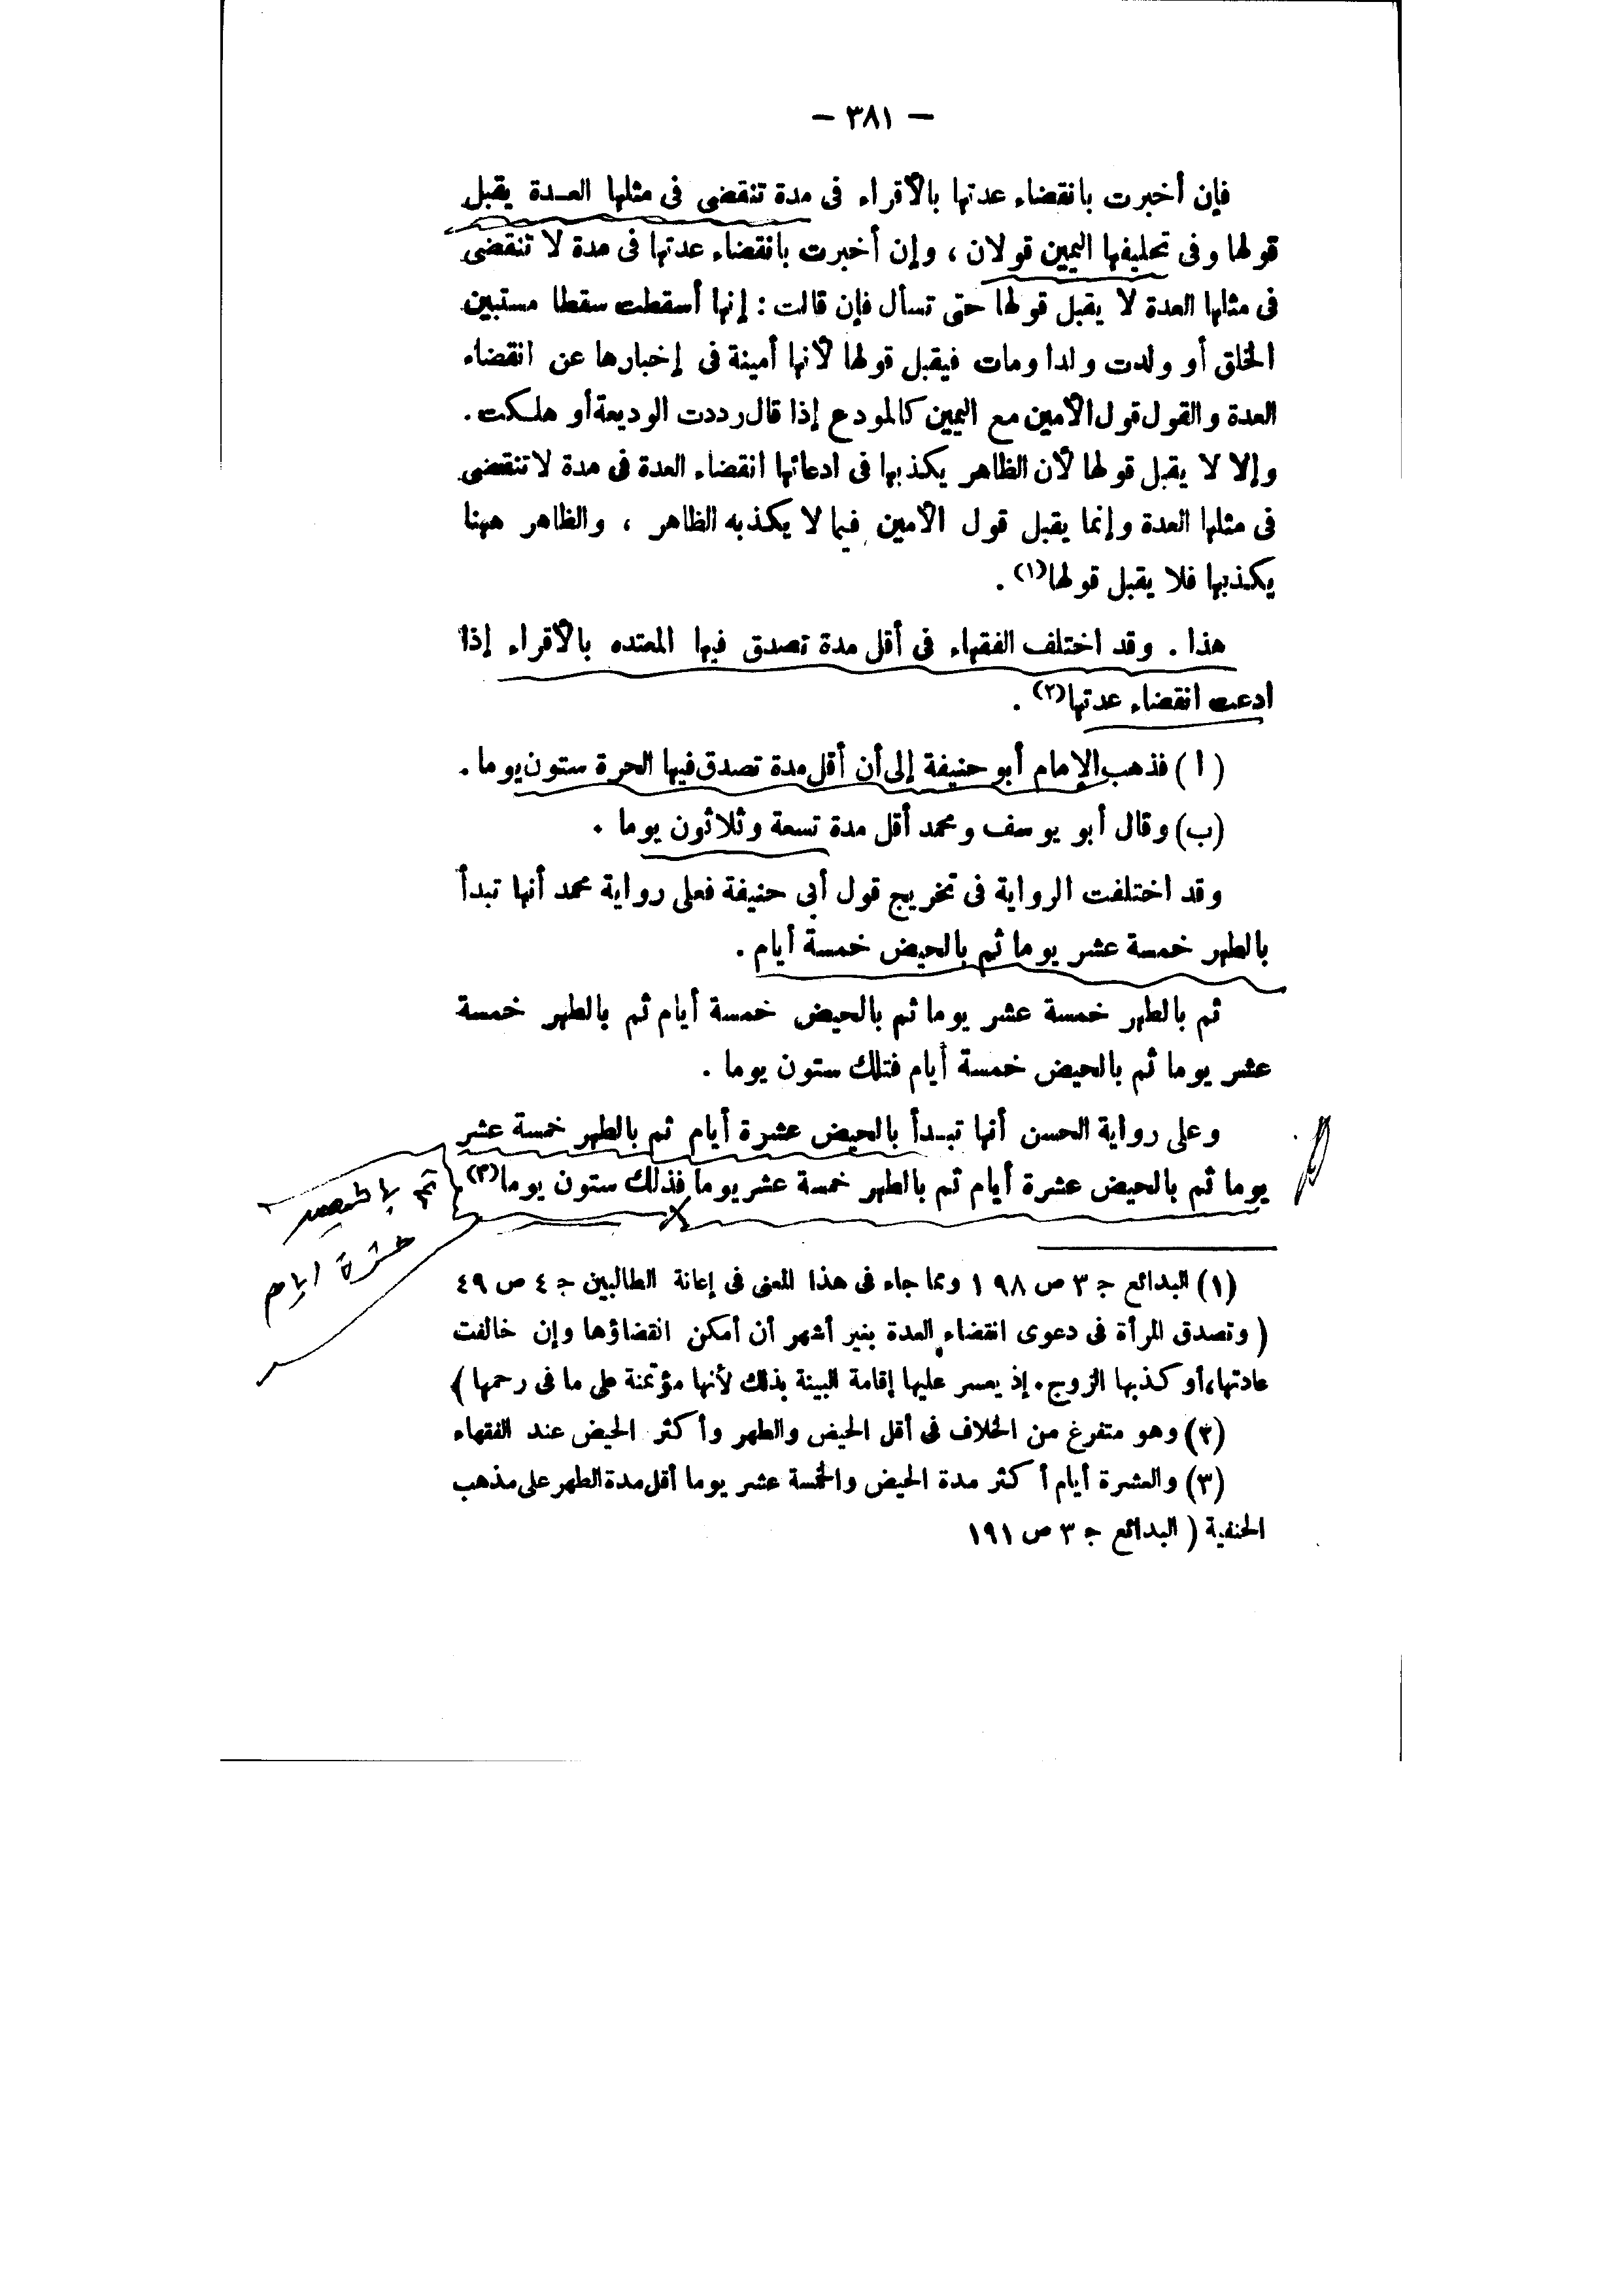 — ٣٨١ —
فإن أخبرت بانقضاء عدتها بالأقراء فى مدة تنقضى فى مثلها العـدة يقبل
قولها وفى تحليفها اليمين قولان ، وإن أخبرت بانقضاء عدتها فى مدة لا تنقضى
فى مثلها العدة لا يقبل قولها حتى تسأل فإن قالت : إنها أسقطت سقطا مستبين
الخلق أو ولدت ولدا ومات فيقبل قولها لأنها أمينة فى إخبارها عن انقضاء
العدة والقول قول الأمين مع اليمين كالمودع إذا قال رددت الوديعة أو هلـكت .
وإلا لا يقبل قولها لأن الظاهر يكذبها فى ادعائها انقضاء العدة فى مدة لا تنقضى
فى مثلها العدة وإنما يقبل قول الأمين فيما لا يكذبه الظاهر ، والظاهر ههنا
يكذبها فلا يقبل قولها(١) .
هذا . وقد اختلف الفقهاء فى أقل مدة تصدق فيها المعتده بالأقراء إذا
ادعت انقضاء عدتها(٢) .
( ا ) فذهب الإمام أبو حنيفة إلى أن أقل مدة تصدق فيها الحرة ستون يوما .
(ب) وقال أبو يوسف ومحمد أقل مدة تسعة وثلاثون يوما .
وقد اختلفت الرواية فى تخريج قول أبى حنيفة فعلى رواية محمد أنها تبدأ
بالطهر خمسة عشر يوما ثم بالحيض خمسة أيام .
ثم بالطهر خمسة عشر يوما ثم بالحيض خمسة أيام ثم بالطهر خمسة
عشر يوما ثم بالحيض خمسة أيام فتلك ستون يوما .
وعلى رواية الحسن أنها تبـدأ بالحيض عشرة أيام ثم بالطهر خمسة عشر
يوما ثم بالحيض عشرة أيام ثم بالطهر خمسة عشر يوما فذلك ستون يوما(٣) .
ثم بالحيض
عشرة أيام
(١) البدائع ج ٣ ص ١٩٨ ومما جاء فى هذا المعنى فى إعانة الطالبين ج ٤ ص ٤٩
( وتصدق المرأة فى دعوى انقضاء العدة بغير أشهر أن أمكن انقضاؤها وإن خالفت
عادتها، أو كذبها الزوج . إذ يعسر عليها إقامة البينة بذلك لأنها مؤتمنة على ما فى رحمها )
(٢) وهو متفرغ من الخلاف فى أقل الحيض والطهر وأكثر الحيض عند الفقهاء
(٣) والعشرة أيام أكثر مدة الحيض والخمسة عشر يوما أقل مدة الطهر على مذهب
الحنفية ( البدائع ج ٣ ص ١٩١